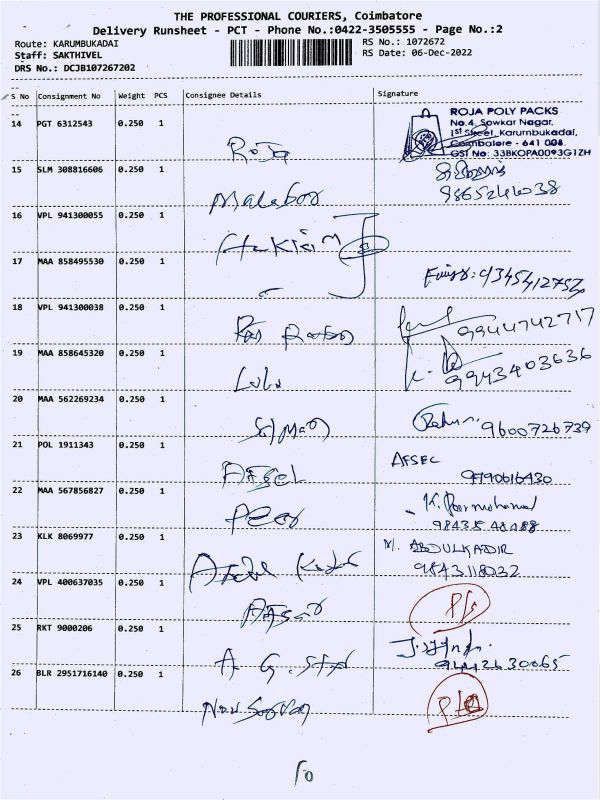 THE PROFESSIONAL COURIERS, Coimbatore
Delivery Runsheet - PCT - Phone No.:0422-3505555 - Page No.:2
Route: KARUMBUKADAI RS No.: 1072672
Staff: SAKTHIVEL RS Date: 06-Dec-2022
DRS No.: DCJB107267202
S No Consignment No Weight PCS Consignee Details Signature
14 PGT 6312543 0.250 1 Roja
ROJA POLY PACKS
No.4, Sowkar Nagar,
1st Street, Karumbukadai,
Coimbatore - 641 008.
GST No: 33BKOPA0093G1ZH
15 SLM 308816606 0.250 1 Malabar
16 VPL 941300055 0.250 1
17 MAA 858495530 0.250 1
18 VPL 941300038 0.250 1 9944742717
19 MAA 858645320 0.250 1 Lulu 9943403636
20 MAA 562269234 0.250 1 Salman 9600726739
21 POL 1911343 0.250 1 AFSEL AFSEL
22 MAA 567856827 0.250 1 Peer K. Peermohamed
23 KLK 8069977 0.250 1 M. ABDULKADIR
9843118032
24 VPL 400637035 0.250 1 Afsar
25 RKT 9000206 0.250 1
26 BLR 2951716140 0.250 1